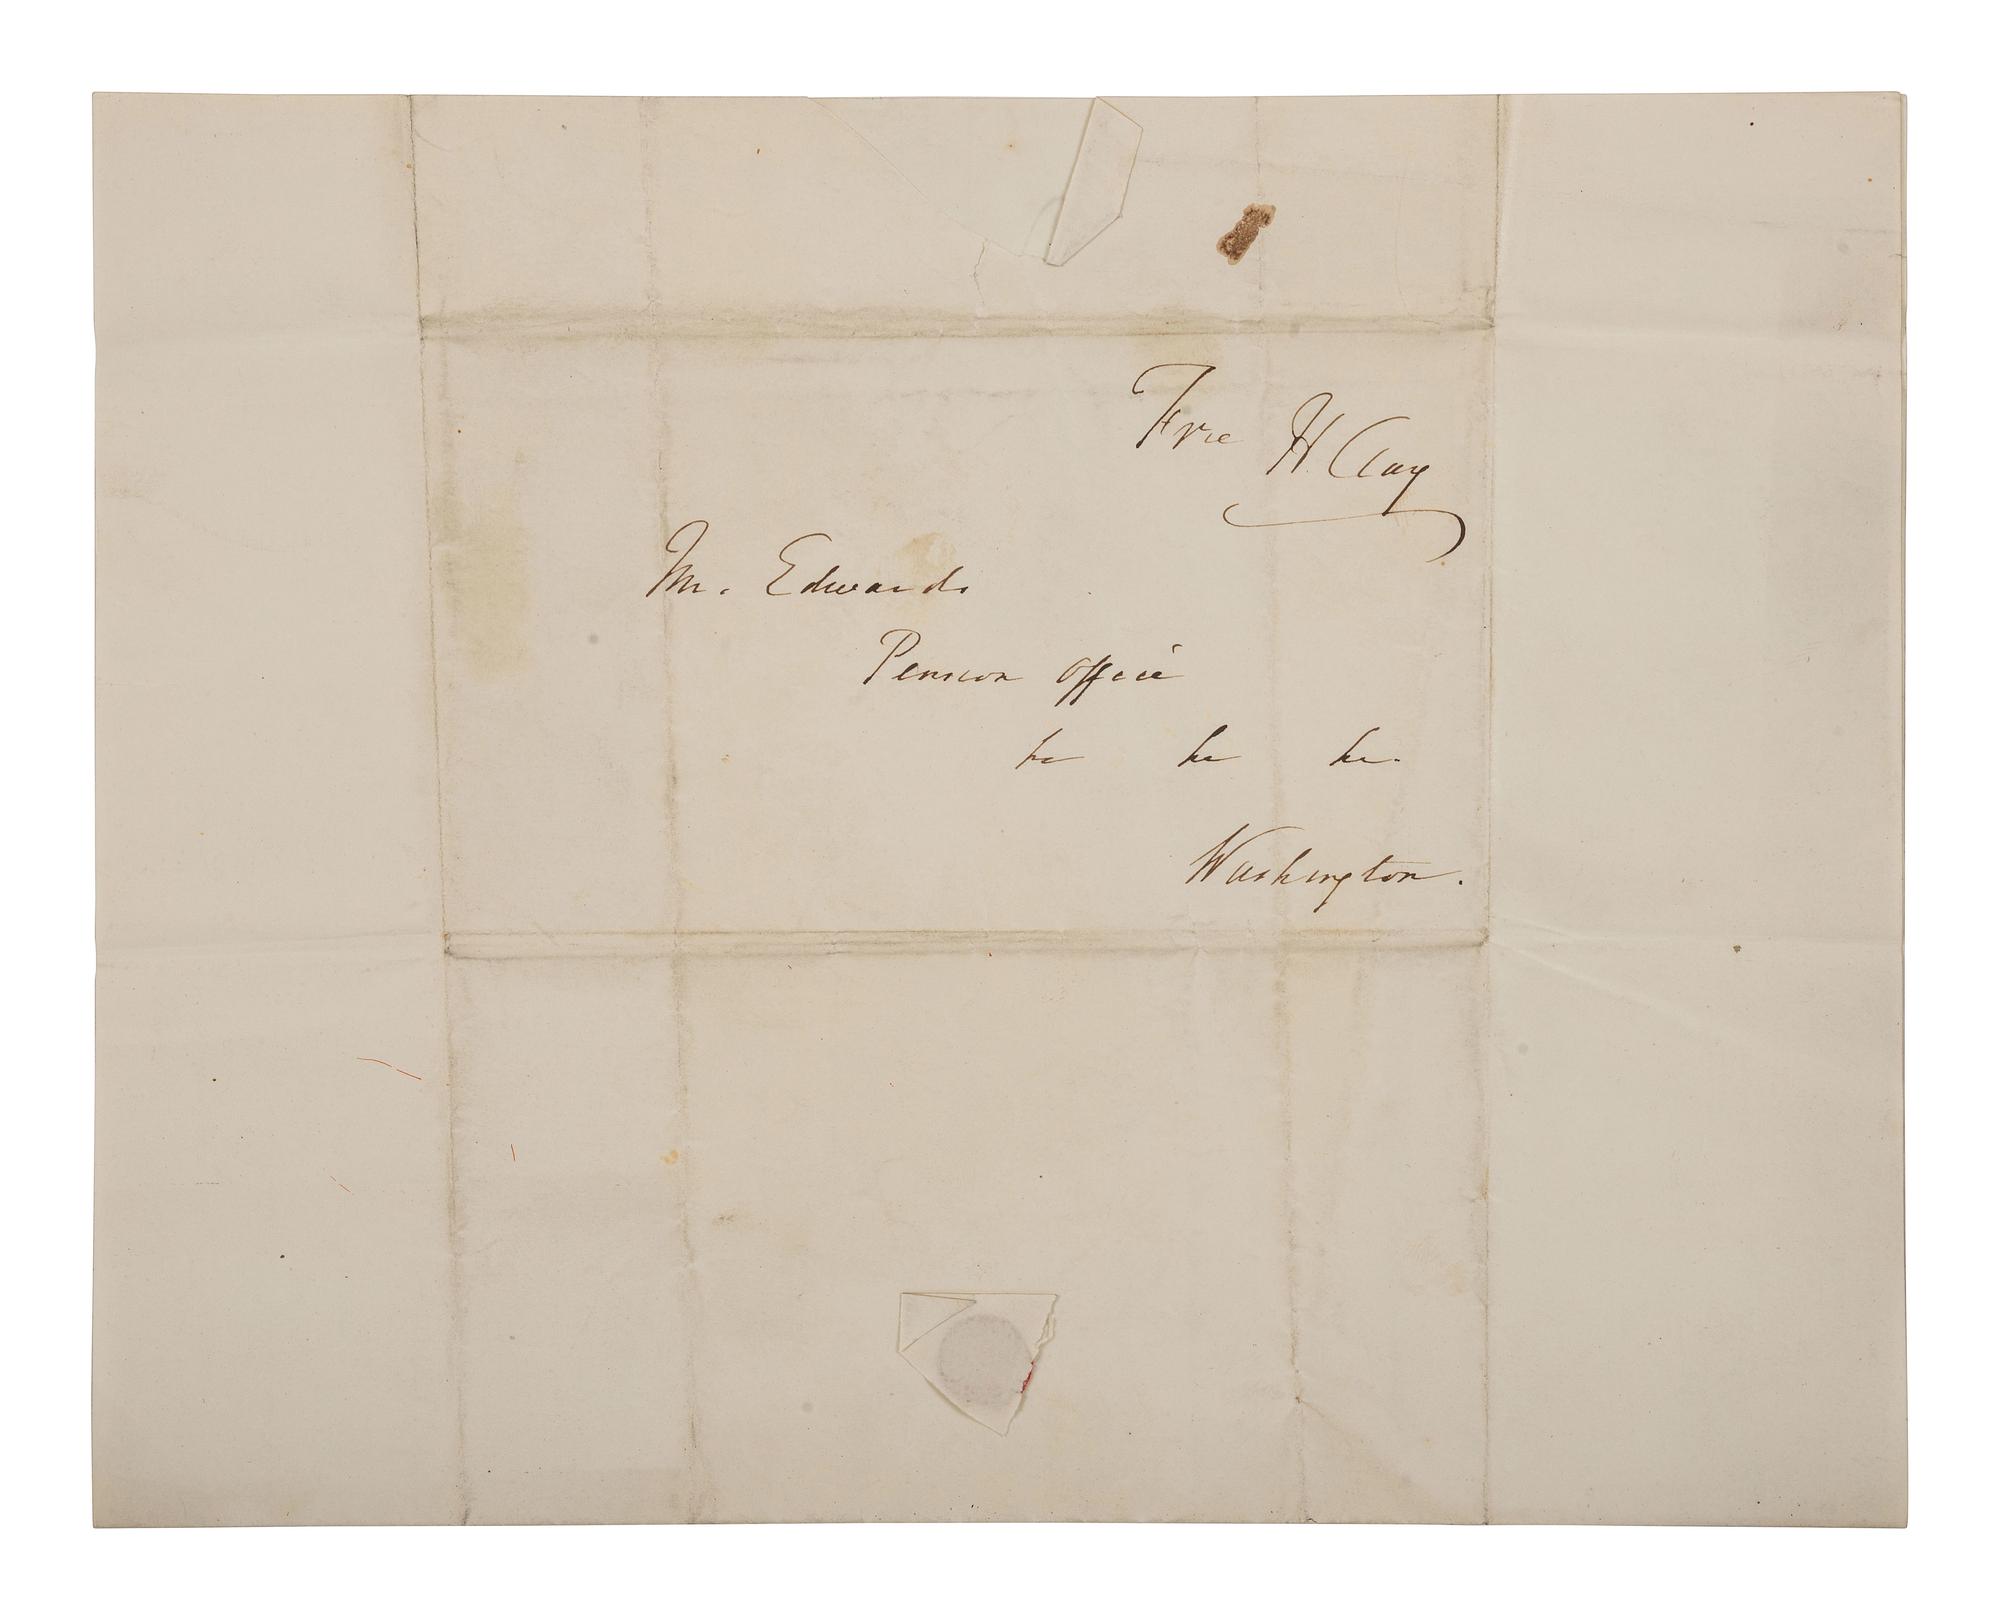 Free H. Clay
Mr. Edwards
Pension Office
&c &c &c.
Washington.